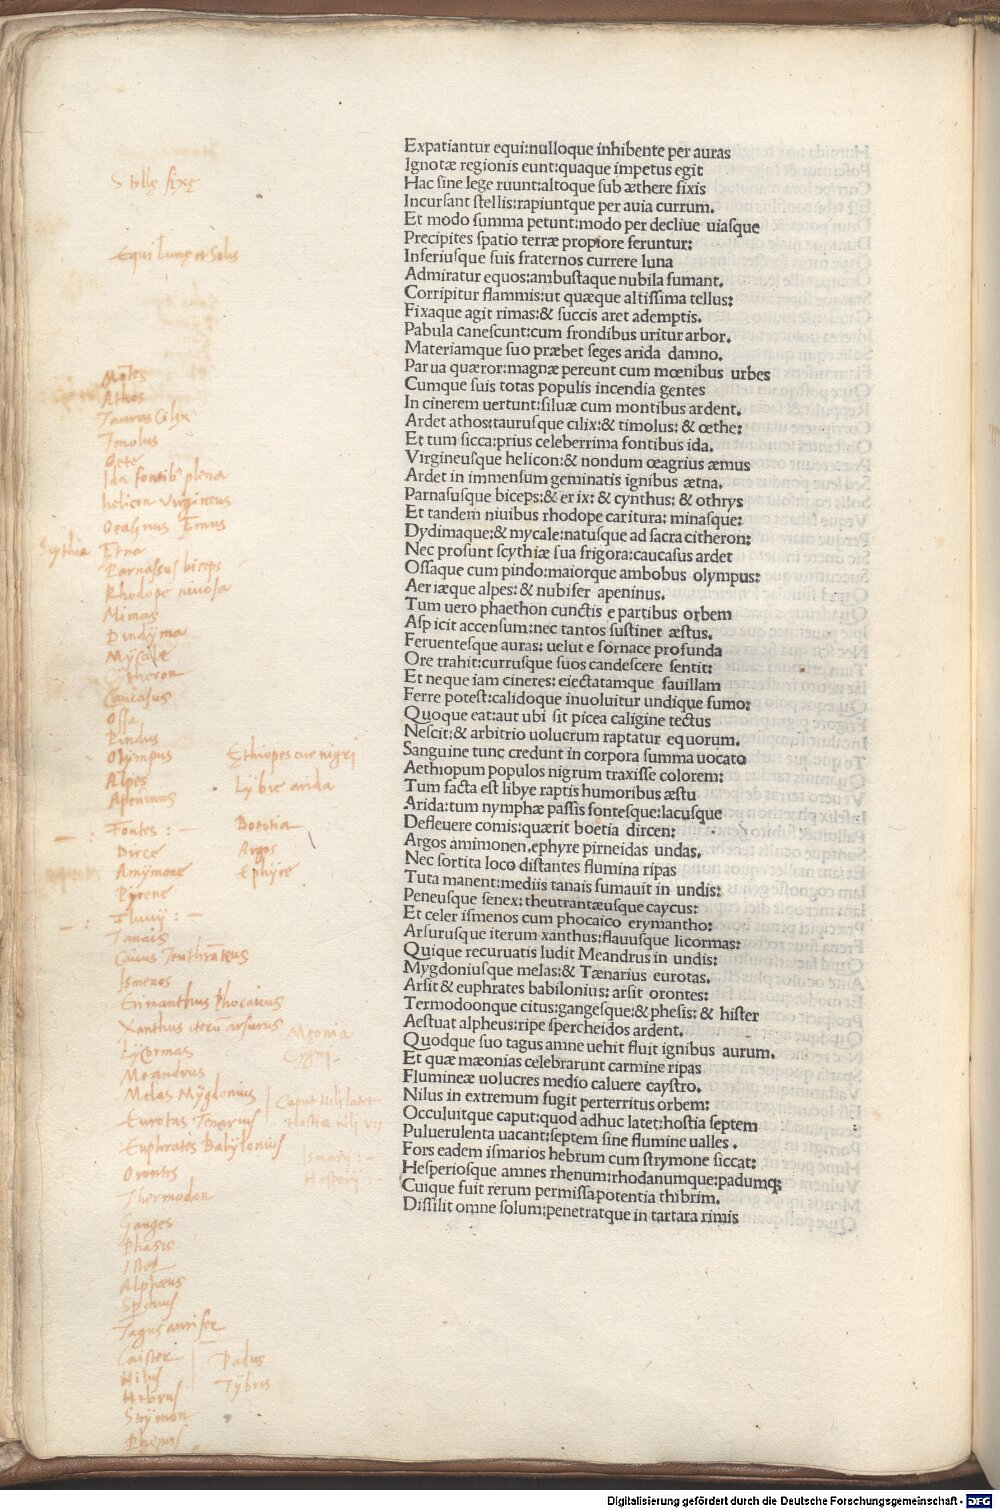 Stellę fixę
Equi Lunę et Solis
Mōtes
Athos
Taurus Cilix
Tmolus
Oete
Ida fontib9 plena
helicon virgineus
Oeagrius Emus
Scythia Etna
Parnassus biceps
Rhodope nivosa
Mimas
Dindyma
Mycale
Cytheron
Caucasus
Ossa
Pindus
Olympus
Alpes
Apeninus
Ethiopes cur nigri
Lybie arida
Fontes : Boeotia
Dirce Argos
Amymone Ephyre
Pyrene
Fluuij :
Tanais
Caicus Teuthrāteus
Ismenos
Erimanthus Phocaicus
Xanthus iterū arsurus
Lycormas
Meandrus
Melas Mygdonius
Eurotas Tenarius
Euphrates Babylonius
Orontes
Thermodon
Ganges
Phasis
Ister
Alphęus
Tagus aurifer
Caister
Nilus
Hebrus
Strymon
Meonia
Caput Nili latet
Hostia nili VII
Ismarij :
Hesperij :
Padus
Tybris
Expatiantur equi:nulloque inhibente per auras
Ignotæ regionis eunt:quaque impetus egit
Hac ſine lege ruunt:altoque ſub æthere fixis
Incurſant ſtellis:rapiuntque per auia currum.
Et modo ſumma petunt:modo per decliue uiaſque
Precipites ſpatio terræ propiore feruntur:
Inferiuſque ſuis fraternos currere luna
Admiratur equos:ambuſtaque nubila fumant.
Corripitur flammis:ut quæque altiſſima tellus:
Fixaque agit rimas:& ſuccis aret ademptis.
Pabula caneſcunt:cum frondibus uritur arbor.
Materiamque ſuo præbet ſeges arida damno.
Parua quæror:magnæ pereunt cum mœnibus urbes
Cumque ſuis totas populis incendia gentes
In cinerem uertunt:ſiluæ cum montibus ardent.
Ardet athos:tauruſque cilix:& timolus: & œthe:
Et tum ſicca:prius celeberrima fontibus ida.
Virgineuſque helicon:& nondum œagrius æmus
Ardet in immenſum geminatis ignibus ætna.
Parnaſuſque biceps:& erix: & cynthus: & othrys
Et tandem niuibus rhodope caritura: minaſque:
Dydimaque:& mycale:natuſque ad ſacra citheron:
Nec proſunt ſcythiæ ſua frigora:caucaſus ardet
Oſſaque cum pindo:maiorque ambobus olympus:
Aeriæque alpes: & nubifer apeninus.
Tum uero phaethon cunctis e partibus orbem
Aſpicit accenſum:nec tantos ſuſtinet æſtus.
Feruenteſque auras: uelut e fornace profunda
Ore trahit:currusque ſuos candeſcere ſentit:
Et neque iam cineres: eiectatamque fauillam
Ferre poteſt:calidoque inuoluitur undique fumo:
Quoque eat:aut ubi ſit picea caligine tectus
Neſcit:& arbitrio uolucrum raptatur equorum.
Sanguine tunc credunt in corpora ſumma uocato
Aethiopum populos nigrum traxiſſe colorem:
Tum facta eſt libye raptis humoribus æſtu
Arida:tum nymphæ paſſis fonteſque:lacuſque
Defleuere comis:quærit boetia dircen:
Argos amimonen.ephyre pirneidas undas.
Nec ſortita loco diſtantes flumina ripas
Tuta manent:mediis tanais fumauit in undis:
Peneuſque ſenex:theutrantæuſque caycus:
Et celer iſmenos cum phocaico erymantho:
Arſuruſque iterum xanthus:flauuſque licormas:
Quique recuruatis ludit Meandrus in undis:
Mygdoniuſque melas:& Tænarius eurotas.
Arſit & euphrates babilonius: arſit orontes:
Termodoonque citus:gangeſque:& pheſis: & hiſter
Aeſtuat alpheus:ripe ſpercheidos ardent.
Quodque ſuo tagus amne uehit fluit ignibus aurum.
Et quæ mæonias celebrarunt carmine ripas
Flumineæ uolucres medio caluere cayſtro.
Nilus in extremum fugit perterritus orbem:
Occuluitque caput:quod adhuc latet:hoſtia ſeptem
Puluerulenta uacant:ſeptem ſine flumine ualles.
Fors eadem iſmarios hebrum cum ſtrymone ſiccat:
Heſperioſque amnes rhenum:rhodanumque:padumqꝫ
Cuique fuit rerum permiſſa potentia thibrim.
Diſſilit omne ſolum:penetratque in tartara rimis
Digitalisierung gefördert durch die Deutsche Forschungsgemeinschaft - DFG